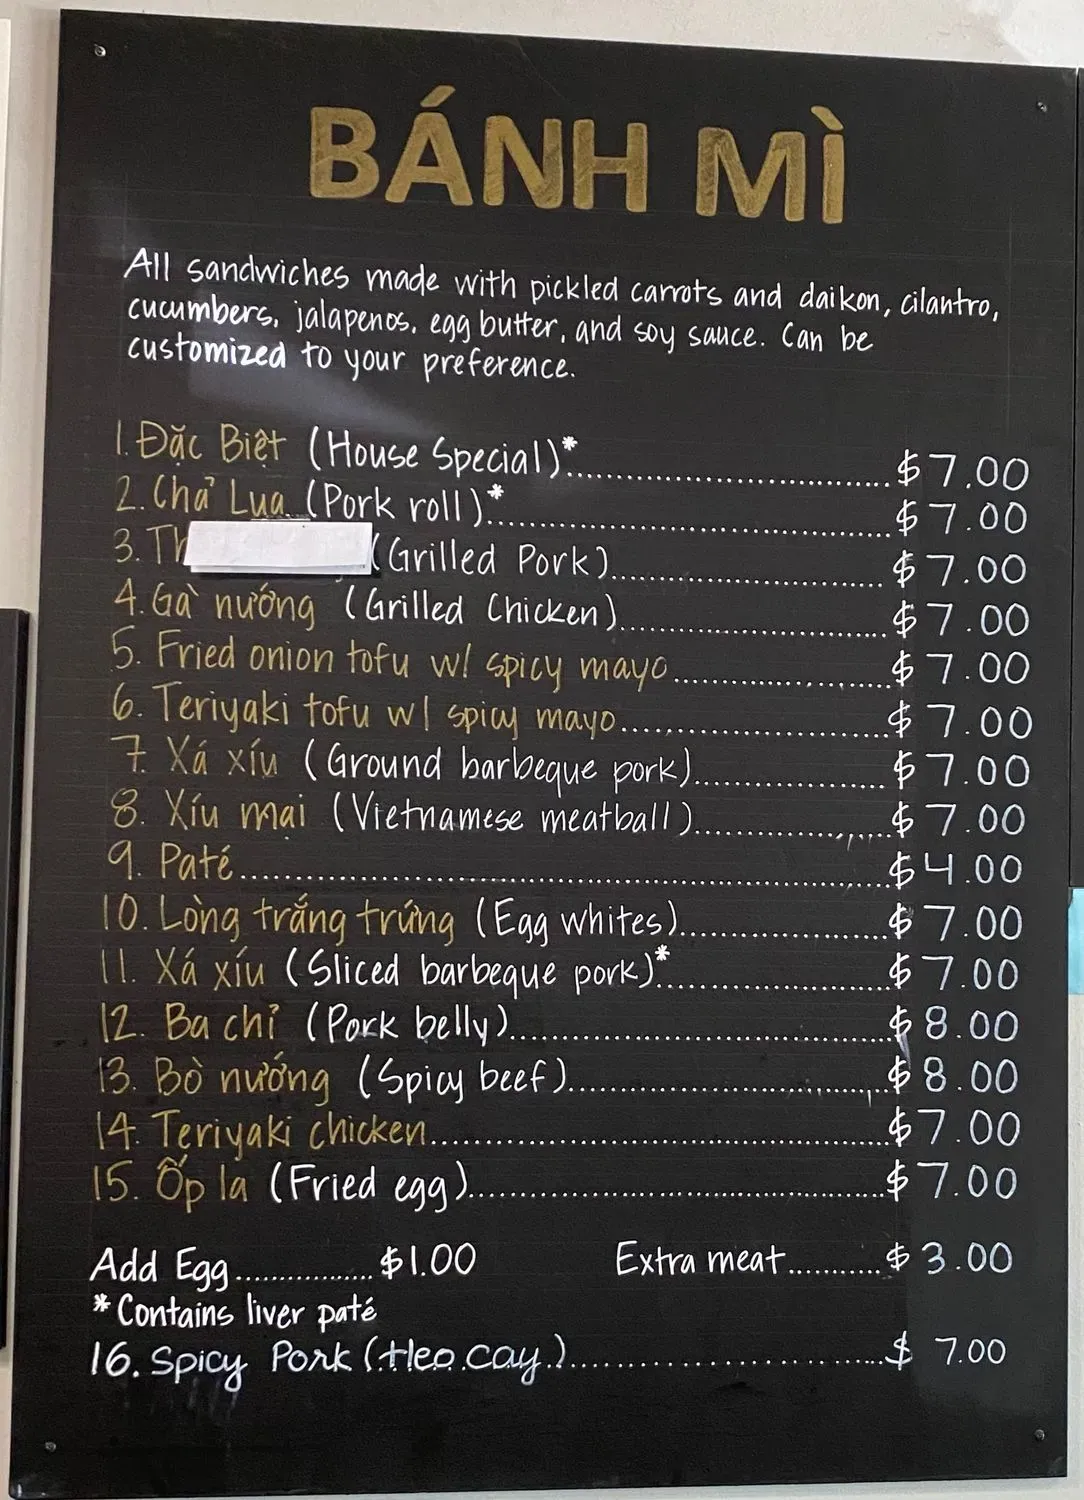 BÁNH MÌ
All sandwiches made with pickled carrots and daikon, cilantro,
cucumbers, jalapenos, egg butter, and soy sauce. Can be
customized to your preference.
1. Đặc Biệt (House Special)*.......... $7.00
2. Chả Lụa (Pork roll)*.......... $7.00
3. (Grilled Pork).......... $7.00
4. Gà nướng (Grilled Chicken).......... $7.00
5. Fried onion tofu w/ spicy mayo.......... $7.00
6. Teriyaki tofu w/ spicy mayo.......... $7.00
7. Xá xíu (Ground barbeque pork).......... $7.00
8. Xíu mại (Vietnamese meatball).......... $7.00
9. Paté.......... $4.00
10. Lòng trắng trứng (Egg whites).......... $7.00
11. Xá xíu (Sliced barbeque pork)*.......... $7.00
12. Ba chỉ (Pork belly).......... $8.00
13. Bò nướng (Spicy beef).......... $8.00
14. Teriyaki chicken.......... $7.00
15. Ốp la (Fried egg).......... $7.00
Add Egg.......... $1.00 Extra meat.......... $3.00
*Contains liver paté
16. Spicy Pork (Heo cay).......... $7.00